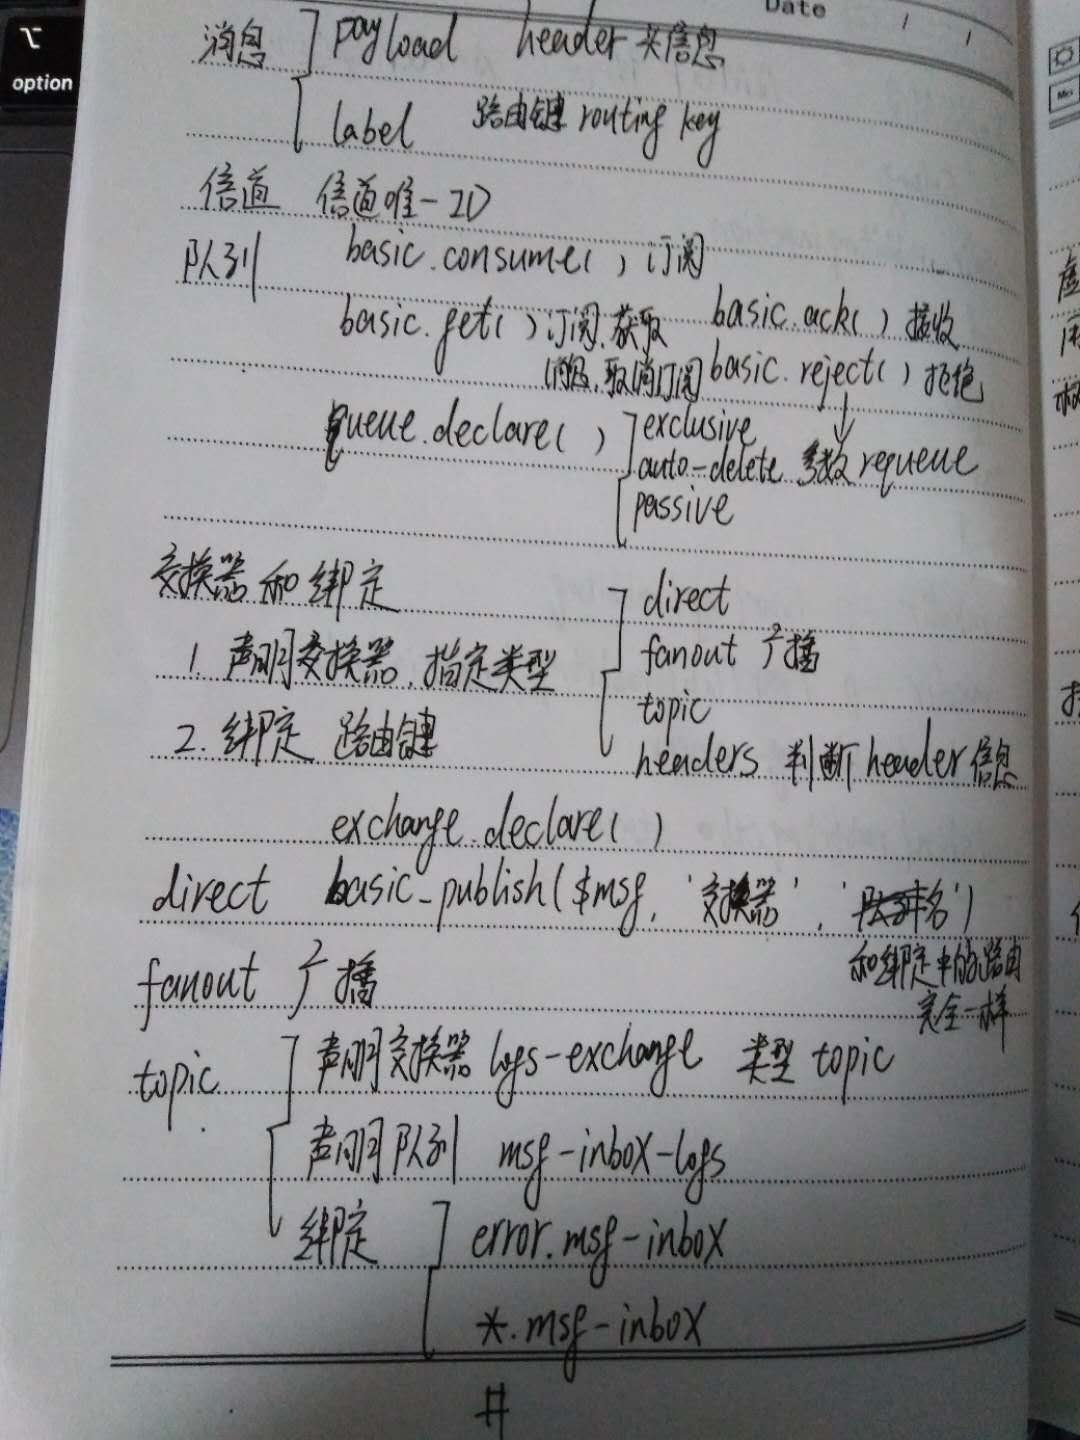 option
Date / /
消息 payload header 头信息
label 路由键 routing key
信道 信道唯一ID
队列 basic.consume() 订阅
basic.get() 订阅,获取 basic.ack() 接收
消息,取消订阅 basic.reject() 拒绝
queue.declare() exclusive
auto-delete 参数 requeue
passive
交换器和绑定 direct
1. 声明交换器,指定类型 fanout 广播
topic
2. 绑定 路由键 headers 判断header信息
exchange.declare()
direct basic_publish($msg, '交换器', '队列名')
和绑定中的路由
完全一样
fanout 广播
topic 声明交换器 logs-exchange 类型 topic
声明队列 msg-inbox-logs
绑定 error.msg-inbox
*.msg-inbox
#